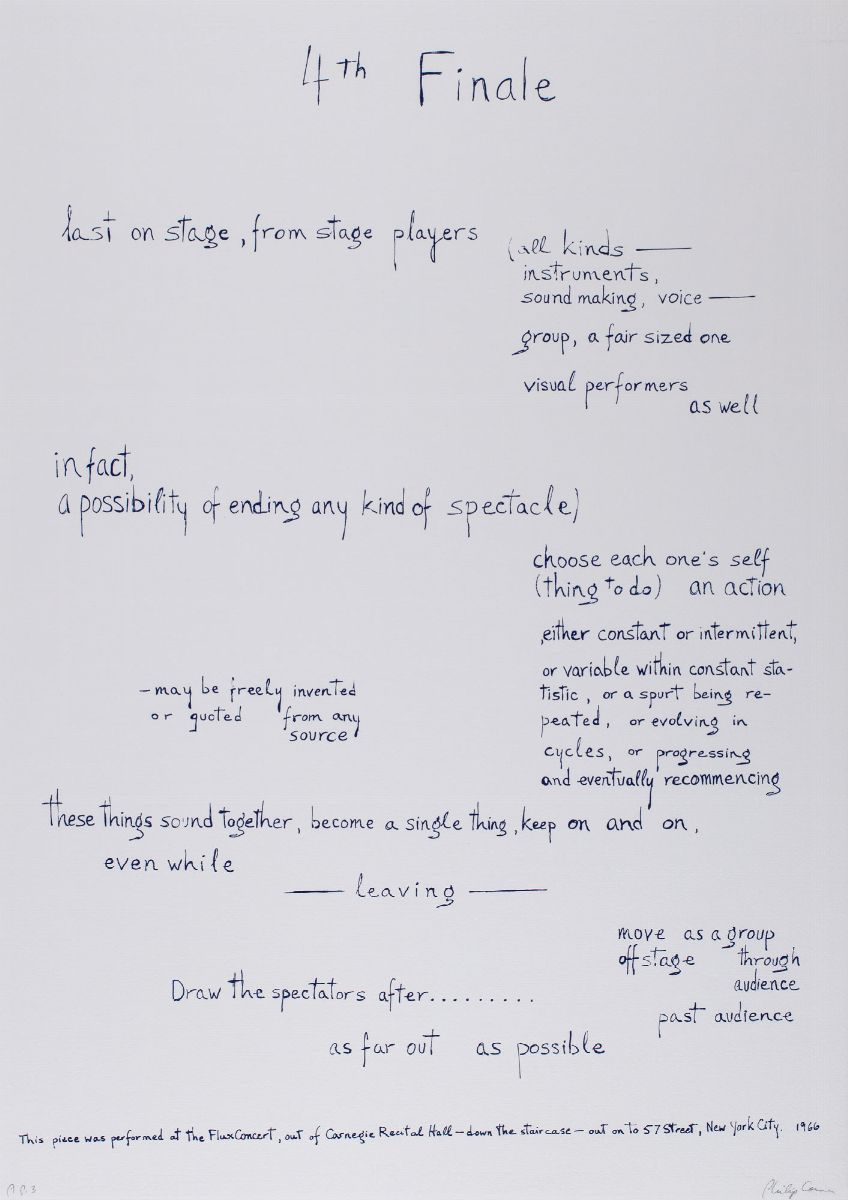 4th Finale
last on stage, from stage players
(all kinds —
instruments,
sound making, voice —
group, a fair sized one
visual performers
as well
in fact,
a possibility of ending any kind of spectacle)
choose each one's self
(thing to do) an action
,either constant or intermittent,
or variable within constant sta-
tistic, or a spurt being re-
peated, or evolving in
cycles, or progressing
and eventually recommencing
-may be freely invented
or quoted from any
source
these things sound together, become a single thing, keep on and on,
even while
— leaving —
move as a group
off stage through
audience
past audience
Draw the spectators after.........
as far out as possible
This piece was performed at the FluxConcert, out of Carnegie Recital Hall – down the staircase – out on to 57 Street, New York City. 1966
Philip